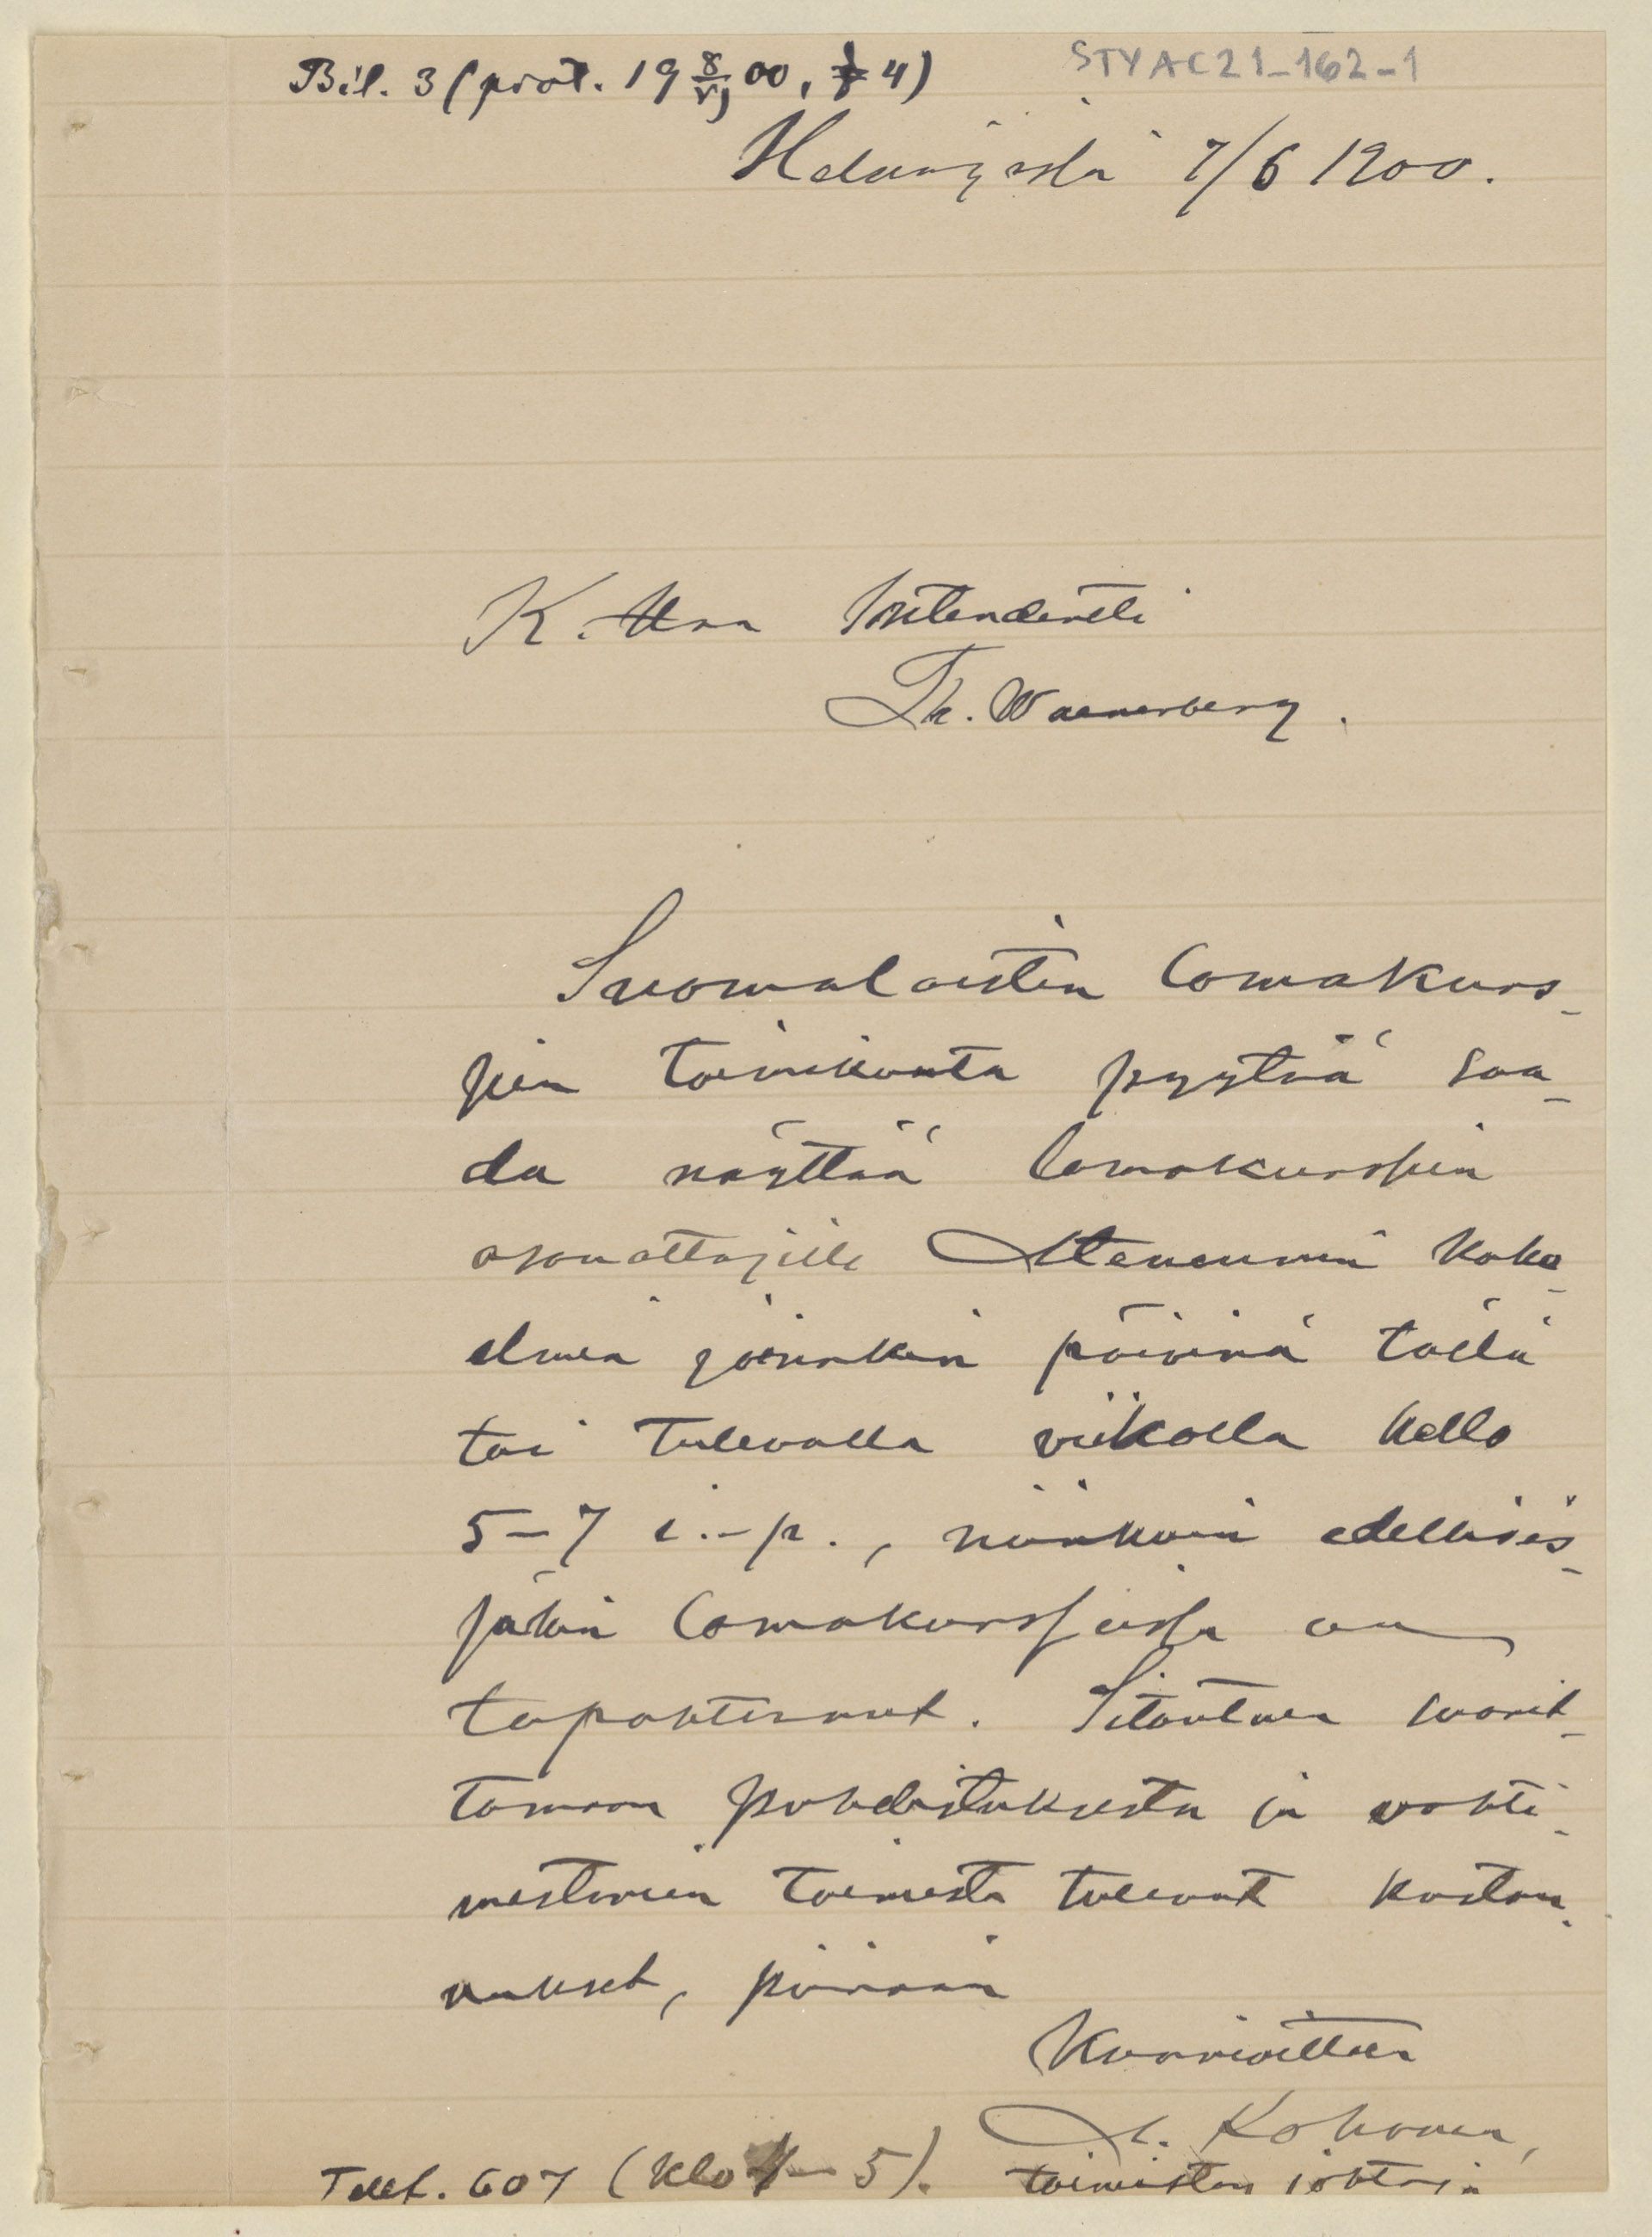 Bil. 3 (prot. 19 8/VI 00, § 4)
STYAC21-162-1
Helsingissä 7/6 1900.
K. Herra Intendentti
Th. Waenerberg.
Suomalaisten lomakurs-
sien toimikunta pyytää saa-
da näyttää lomakurssien
osanottajille Ateneumin koko-
elmia joinakin päivinä tällä
tai tulevalla viikolla kello
5-7 i.-p., niinkuin edellisis-
säkin lomakursseissa on
tapahtunut. Sitoutuen suorit-
tamaan puhdistuksesta ja vahti-
mestarien toimesta tulevat kustan-
nukset, piirrän
Kunnioittaen
A. Kohonen,
Telef. 607 (Klo - 5). toimiston johtaja